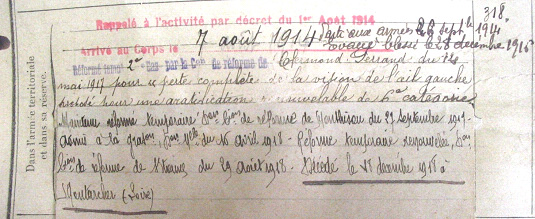 Rappelé à l'activité, par décret du 1er Aout 1914
318
Arrivé au Corps le 7 août 1914 Parti aux armées le sept 1914
évacué blessé le 8 décembre 1916
Réformé temre 2e par la Con de réforme de Clermond Ferrand du
mai 1917 pour "perte complète de la vision de l'œil gauche
pour une gratification renouvelable de 6e catégorie
Maintenu réforme temporaire de réforme de Montbrison du 27 Septembre 1917.
Admis à la du 16 avril 1918 - Réforme temporaire renouvelée,
de réforme de St Etienne du 29 août 1918. Décédé le décembre 1918 à
Montarcher (Loire)
Dans l'armée territoriale
et dans sa réserve.